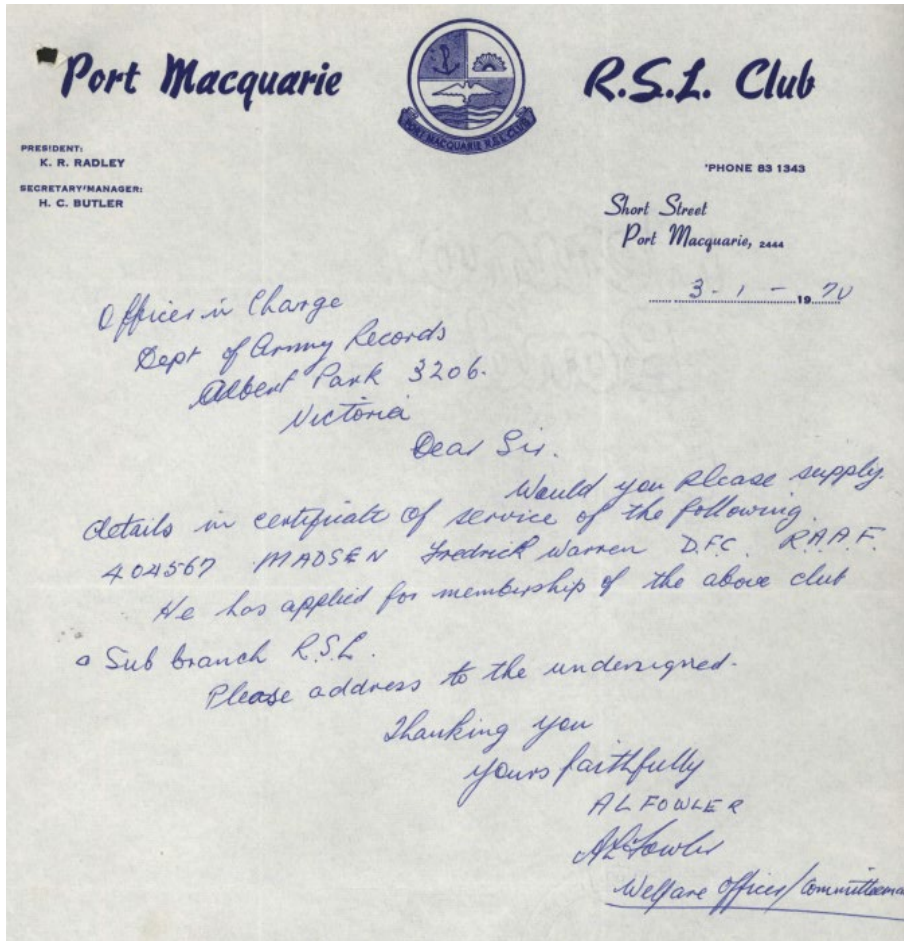 Port Macquarie R.S.L. Club
PORT MACQUARIE R.S.L. CLUB
PRESIDENT:
K. R. RADLEY
SECRETARY/MANAGER:
H. C. BUTLER
'PHONE 83 1343
Short Street
Port Macquarie, 2444
3 - 1 - 1970
Officer in Charge
Dept of Army Records
Albert Park 3206.
Victoria
Dear Sir.
Would you please supply.
details in certificate of service of the following.
404567 MADSEN Fredrick Warren D.F.C. R.A.A.F.
He has applied for membership of the above club
a Sub branch R.S.L.
Please address to the undersigned.
Thanking you
yours faithfully
A L FOWLER
ALFowler
Welfare Officer/Committeema